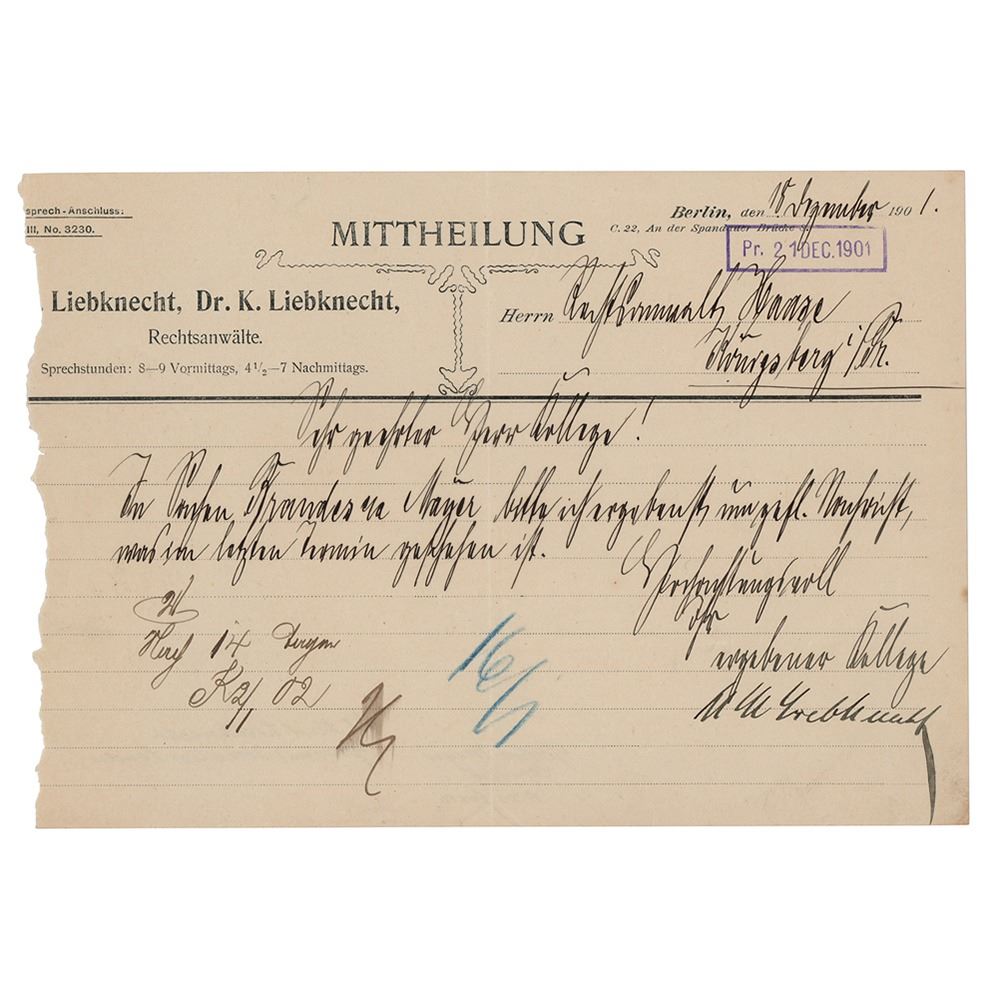 sprech-Anschluss:
III, No. 3230.
MITTHEILUNG
Berlin, den 18 Dezember 1901.
C. 22, An der Spandauer Brücke
Pr. 21 DEC. 1901
. Liebknecht, Dr. K. Liebknecht,
Rechtsanwälte.
Sprechstunden: 8–9 Vormittags, 4½–7 Nachmittags.
Herrn Rechtsanwalt Haase
Königsberg i/Pr.
Sehr geehrter Herr Kollege!
In Sachen Brandes ca Meyer bitte ich ergebenst um gefl. Nachricht,
was im letzten Termin geschehen ist.
Hochachtungsvoll
Ihr
ergebener Kollege
Liebknecht
Nach 14 Tagen
K 2/1 02
16/1